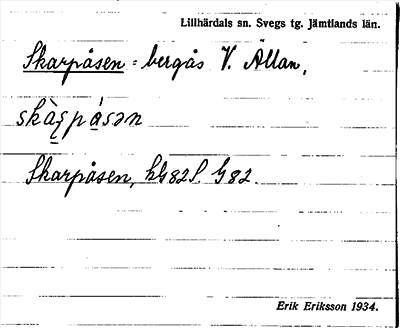 Lillhärdals sn. Svegs tg. Jämtlands län.
Skarpåsen = bergås V. Ällan,
Skarpåsen, kG82S. G82.
Erik Eriksson 1934.